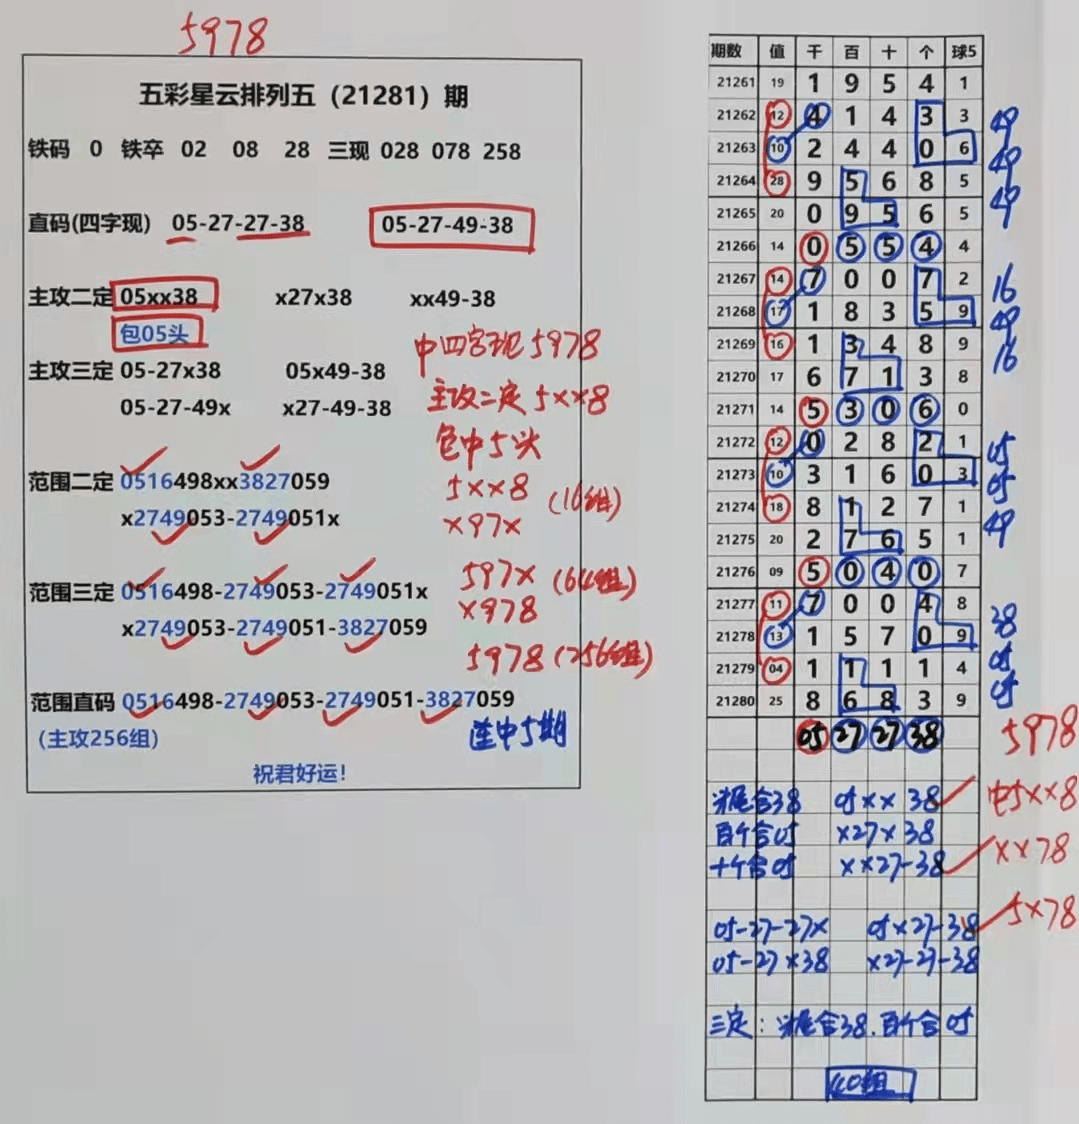 5978
五彩星云排列五（21281）期
铁码 0 铁卒 02 08 28 三现 028 078 258
直码(四字现) 05-27-27-38 05-27-49-38
主攻二定 05xx38 x27x38 xx49-38
包05头
中四字现5978
主攻三定 05-27x38 05x49-38
主攻二定5xx8
05-27-49x x27-49-38
包中5头
范围二定 0516498xx3827059
5xx8 (16组)
x2749053-2749051x
x97x
范围三定 0516498-2749053-2749051x
597x (64组)
x2749053-2749051-3827059
x978
5978 (256组)
范围直码 0516498-2749053-2749051-3827059
(主攻256组) 连中5期
祝君好运!
期数 值 千 百 十 个 球5
21261 19 1 9 5 4 1
21262 12 4 1 4 3 3 49
21263 10 2 4 4 0 6 49
21264 28 9 5 6 8 5 49
21265 20 0 9 5 6 5
21266 14 0 5 5 4 4
21267 14 7 0 0 7 2 16
21268 17 1 8 3 5 9 49
21269 16 1 3 4 8 9 16
21270 17 6 7 1 3 8
21271 14 5 3 0 6 0
21272 12 0 2 8 2 1 05
21273 10 3 1 6 0 3 05
21274 18 8 1 2 7 1 49
21275 20 2 7 6 5 1
21276 09 5 0 4 0 7
21277 11 7 0 0 4 8 38
21278 13 1 5 7 0 9 05
21279 04 1 1 1 1 4 05
21280 25 8 6 8 3 9
05 27 27 38 5978
头尾合38 05xx 38 中5xx8
百个合05 x27x 38
十个合05 xx27-38 xx78
05-27-27x 05x27-38 5x78
05-27x38 x27-27-38
三定：头尾合38.百个合05
40组